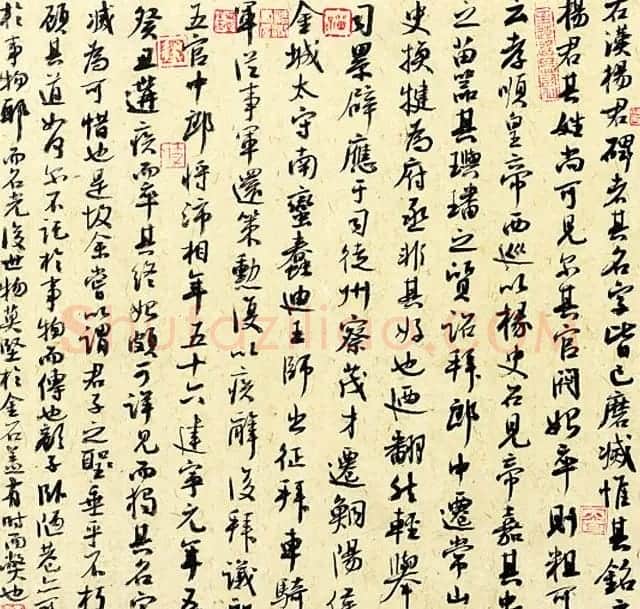 右漢楊君碑者其名字皆已磨滅惟其銘
楊君其姓尚可見尔其官閥始卒則粗可
云孝順皇帝西巡以椽史召見帝嘉其忠
之苗器其璵璠之質詔拜郎中遷常山
史換犍為府丞非其好也迺翻然輕舉
司累辟應于司徒州察茂才遷鮦陽侯
金城太守南蠻蠢迪王師出征拜車騎
軍從事軍還策勳復以疾辭後拜議郎
五官中郎將沛相年五十六建寧元年五
癸丑遘疾而卒其終始頗可詳見而獨其名字
滅為可惜也是故余嘗以謂君子之聖垂乎不朽
顧其道如何尔不託於事物而傳也顏子臥陋巷亦
於事物耶而名光後世物莫堅於金石蓋有時而弊也
Shufaziliao.COM